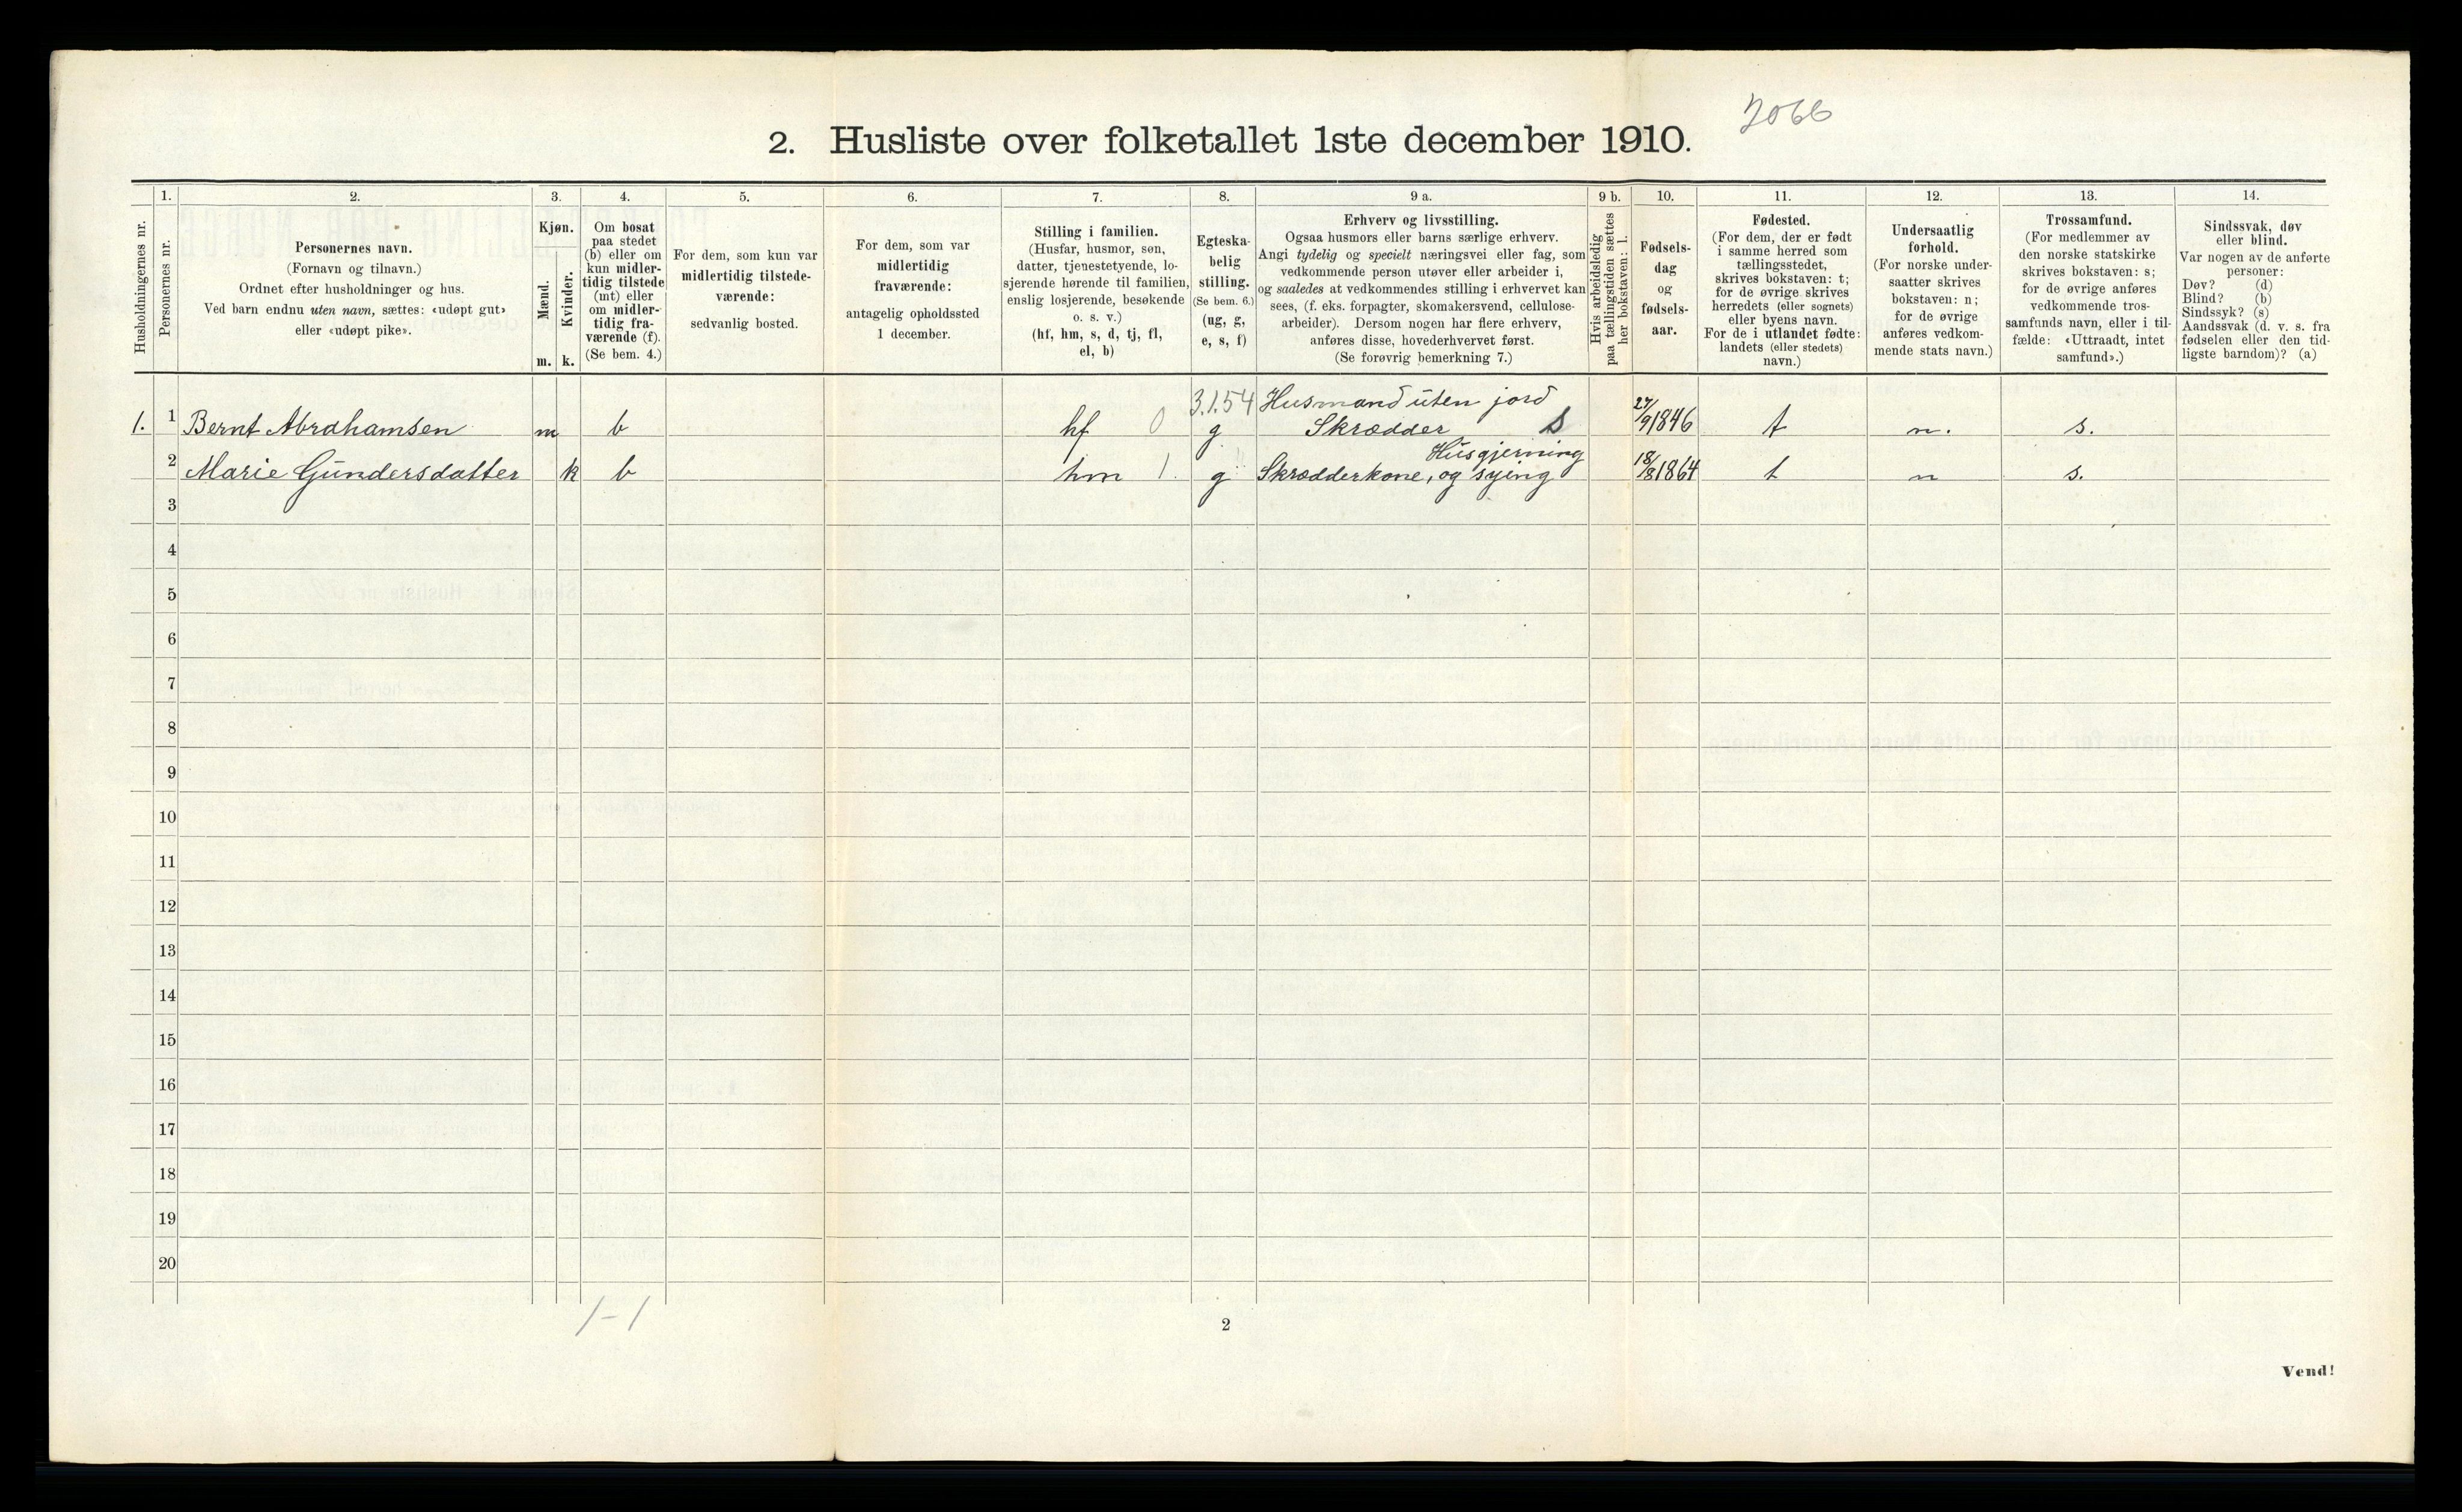 7066
2. Husliste over folketallet 1ste december 1910.
Husholdningernes nr.
1.
Personernes nr.
2.
Personernes navn.
(Fornavn og tilnavn.)
Ordnet efter husholdninger og hus.
Ved barn endnu uten navn, sættes: «udøpt gut»
eller «udøpt pike».
3.
Kjøn.
Mænd.
m.
Kvinder.
k.
4.
Om bosat
paa stedet
(b) eller om
kun midler-
tidig tilstede
(mt) eller
om midler-
tidig fra-
værende (f).
(Se bem. 4.)
5.
For dem, som kun var
midlertidig tilstede-
værende:
sedvanlig bosted.
6.
For dem, som var
midlertidig
fraværende:
antagelig opholdssted
1 december.
7.
Stilling i familien.
(Husfar, husmor, søn,
datter, tjenestetyende, lo-
sjerende hørende til familien,
enslig losjerende, besøkende
o. s. v.)
(hf, hm, s, d, tj, fl,
el, b)
8.
Egteska-
belig
stilling.
(Se bem. 6.)
(ug, g,
e, s, f)
9 a.
Erhverv og livsstilling.
Ogsaa husmors eller barns særlige erhverv.
Angi tydelig og specielt næringsvei eller fag, som
vedkommende person utøver eller arbeider i,
og saaledes at vedkommendes stilling i erhvervet kan
sees, (f. eks. forpagter, skomakersvend, cellulose-
arbeider). Dersom nogen har flere erhverv,
anføres disse, hovederhvervet først.
(Se forøvrig bemerkning 7.)
9 b.
Hvis arbeidsledig
paa tællingstiden sættes
her bokstaven: l.
10.
Fødsels-
dag
og
fødsels-
aar.
11.
Fødested.
(For dem, der er født
i samme herred som
tællingsstedet,
skrives bokstaven: t;
for de øvrige skrives
herredets (eller sognets)
eller byens navn.
For de i utlandet fødte:
landets (eller stedets)
navn.)
12.
Undersaatlig
forhold.
(For norske under-
saatter skrives
bokstaven: n;
for de øvrige
anføres vedkom-
mende stats navn.)
13.
Trossamfund.
(For medlemmer av
den norske statskirke
skrives bokstaven: s;
for de øvrige anføres
vedkommende tros-
samfunds navn, eller i til-
fælde: «Uttraadt, intet
samfund».)
14.
Sindssvak, døv
eller blind.
Var nogen av de anførte
personer:
Døv? (d)
Blind? (b)
Sindssyk? (s)
Aandssvak (d. v. s. fra
fødselen eller den tid-
ligste barndom)? (a)
3.1.54 Husmand uten jord
1. 1 Bernt Abrahamsen m b hf 0 g Skrædder S 27/9 1846 t n. s.
Husgjerning
2 Marie Gundersdatter k b hm 1 g Skrædderkone, og sying 18/8 1864 t n s.
3
4
5
6
7
8
9
10
11
12
13
14
15
16
17
18
19
20
1 - 1
2
Vend!